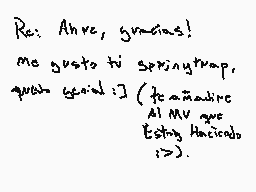 Re: Ahre, gracias!
me gusto tu springtrap,
quedo genial :] (te añadire
Al MV que
Estoy Haciendo
:>).